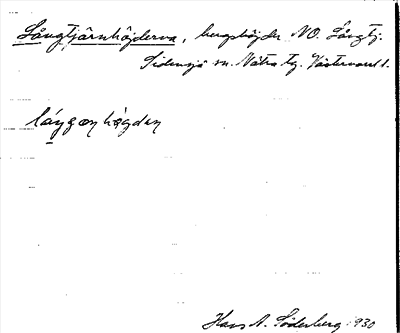 Långtjärnhöjderna, bergshöjder NO. Långtj.
Sidensjö sn. Nätra tg. Västernorrl.
Hans A. Söderberg 1930